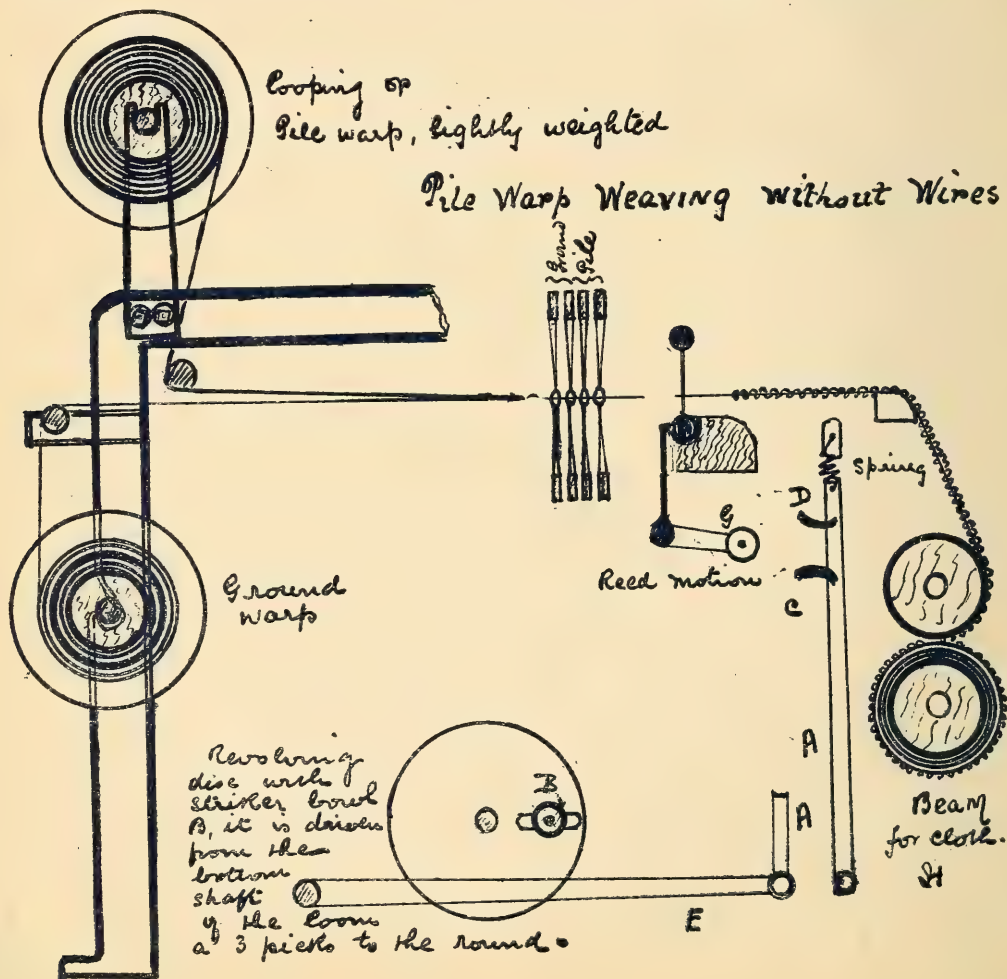 Looping or
Pile warp, lightly weighted
Pile Warp Weaving without Wires
Ground
Pile
Spring
A
G
Reed motion
C
Ground
warp
A
Revolving
disc with
striker bowl
B, it is driven
from the
bottom
shaft
of the loom
a 3 picks to the round.
B
A
E
Beam
for cloth.